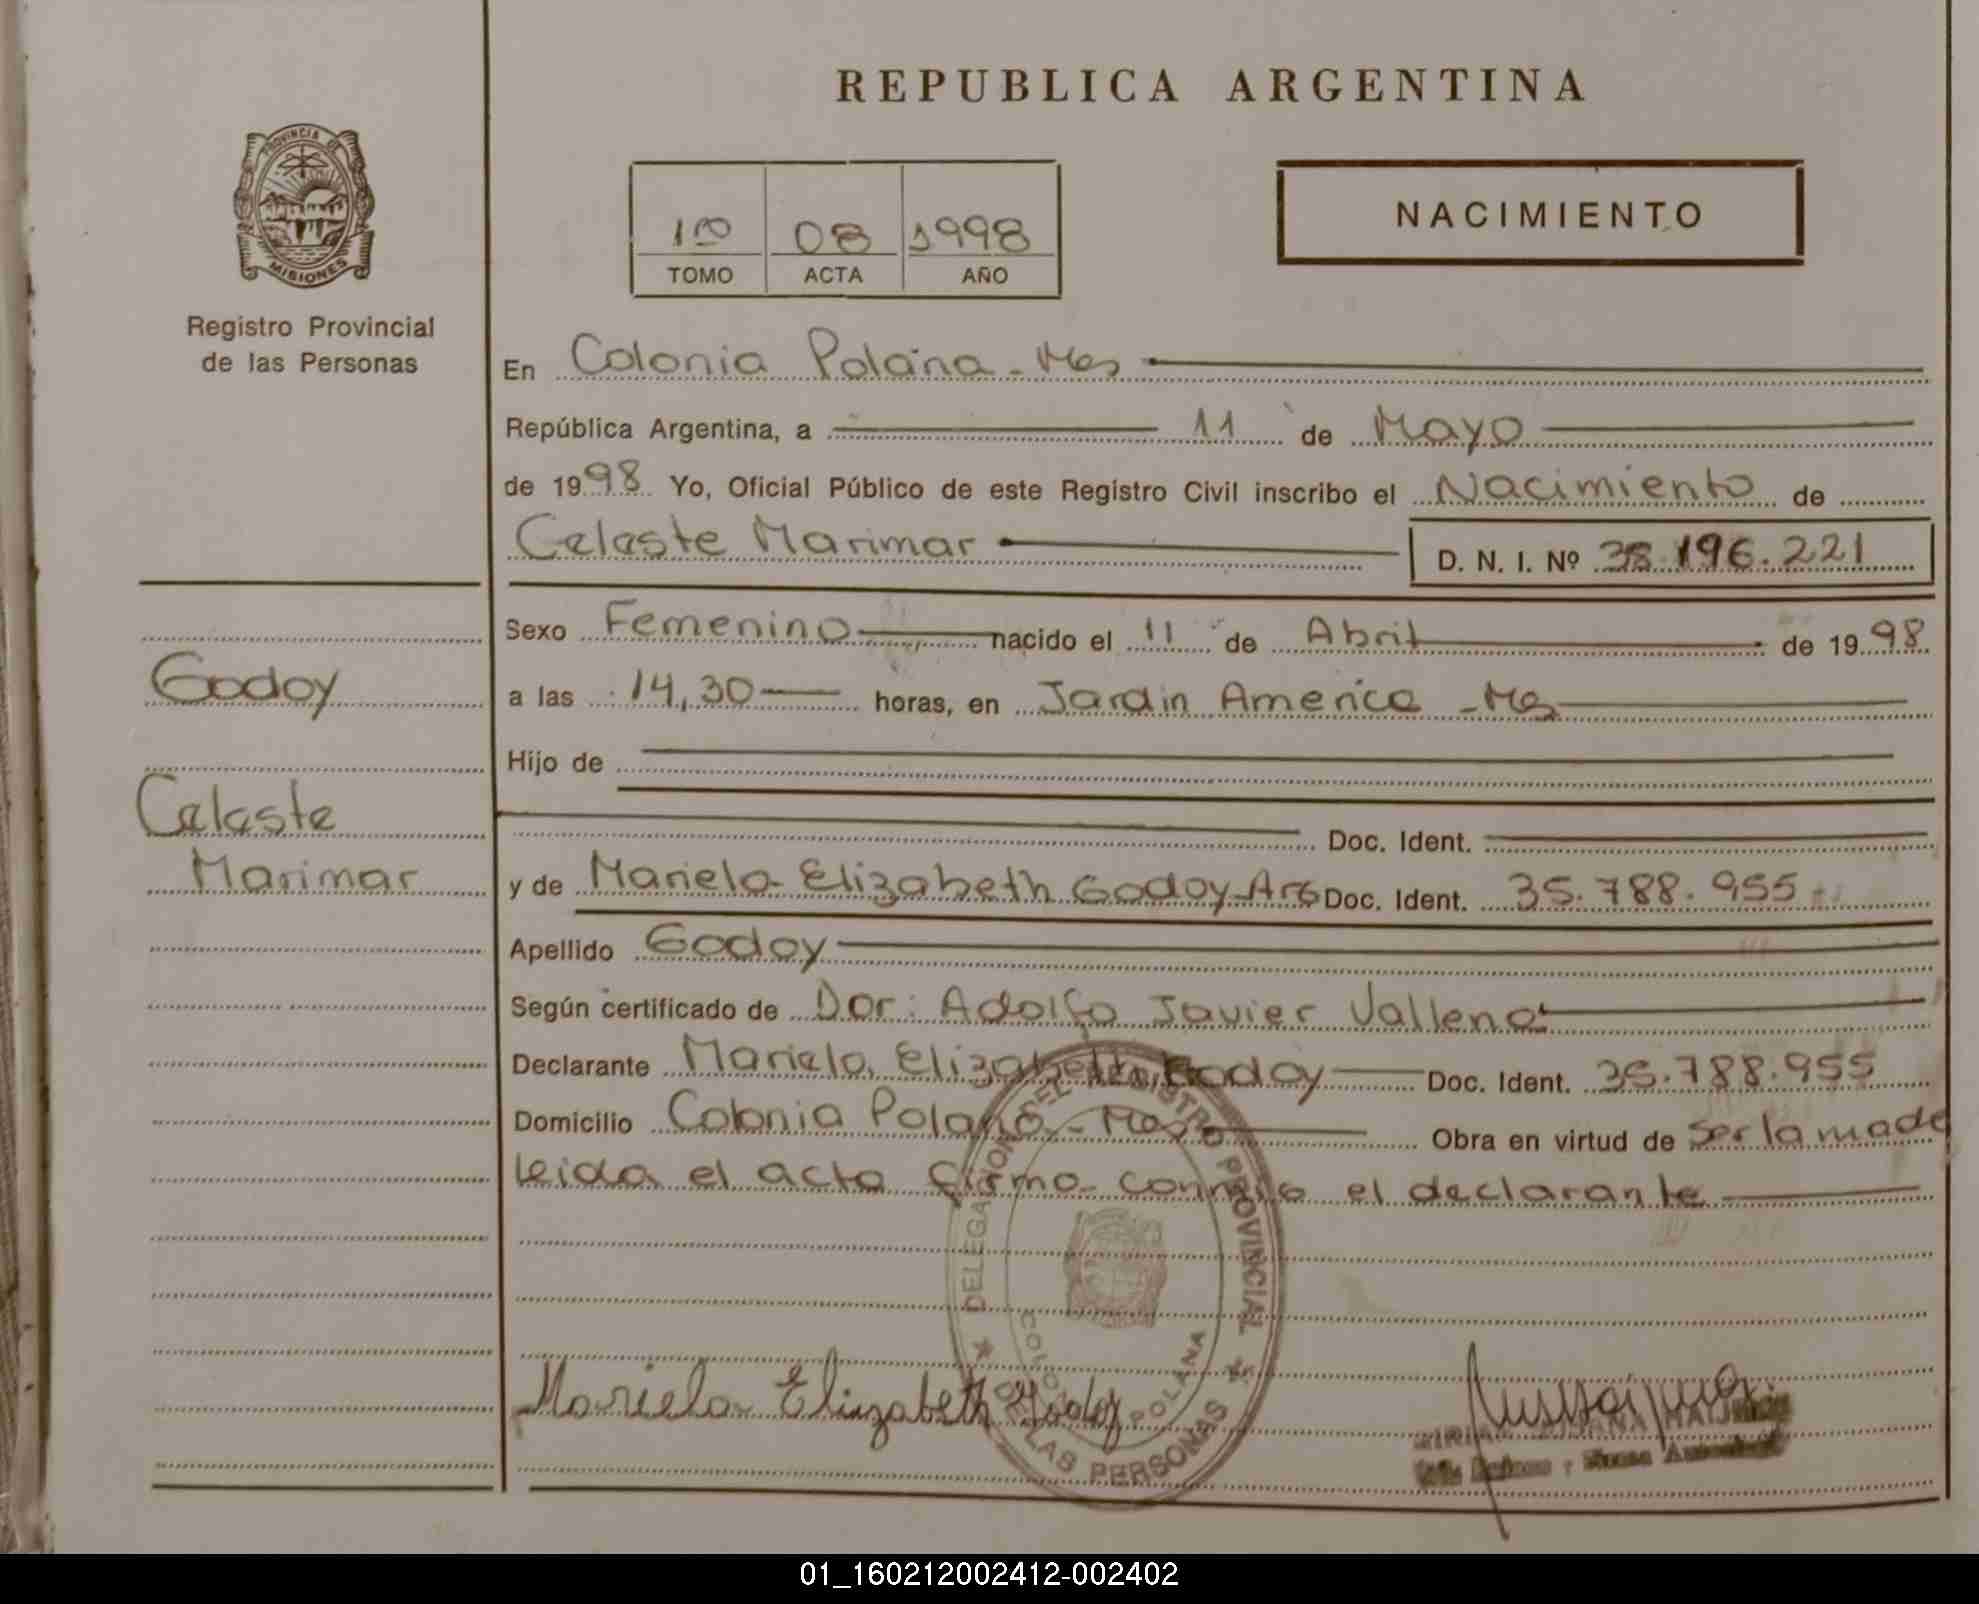 REPUBLICA ARGENTINA
PROVINCIA DE
MISIONES
Registro Provincial
de las Personas
1ro 08 1998
TOMO ACTA AÑO
NACIMIENTO
En Colonia Polana - Mes
República Argentina, a 11 de Mayo
de 1998 Yo, Oficial Público de este Registro Civil inscribo el Nacimiento de
Celeste Marimar D. N. I. Nº 38.196.221
Sexo Femenino nacido el 11 de Abril de 1998
Godoy
a las 14,30 horas, en Jardin America - Mes
Hijo de
Celeste
Doc. Ident.
Marimar
y de Mariela Elizabeth Godoy-Arg Doc. Ident. 35.788.955
Apellido Godoy
Según certificado de Dor: Adolfo Javier Vallena
Declarante Mariela Elizabeth Godoy Doc. Ident. 35.788.955
Domicilio Colonia Polana - Mes Obra en virtud de ser la madre
leida el acta firma conmigo el declarante
DELEGACION DEL REGISTRO PROVINCIAL
DE LAS PERSONAS
COLONIA POLANA
Mariela Elizabeth Godoy
01_160212002412-002402